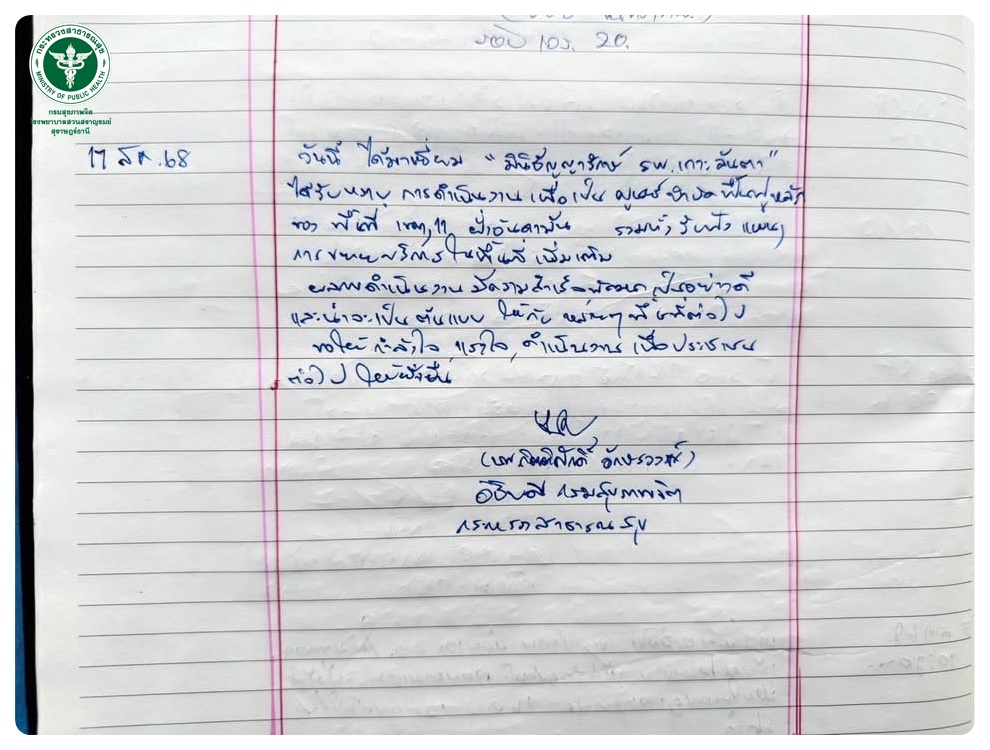 กระทรวงสาธารณสุข
MINISTRY OF PUBLIC HEALTH
กรมสุขภาพจิต
โรงพยาบาลสวนสราญรมย์
สุราษฎร์ธานี
20.
17 สค.68
วันนี้ ได้มาเยี่ยม "มินิธัญญารักษ์ รพ.เกาะลันตา"
ได้รับทราบ การดำเนินงาน เพื่อเป็น ศูนย์ บำบัด ฟื้นฟู หลัก
ของ พื้นที่ เขต 11 ฝั่งอันดามัน รวมทั้ง รับฟัง แผน
การขยายบริการ ในพื้นที่ เพิ่มเติม
ผลการดำเนินงาน มีความสำเร็จ เป็นอย่างดี
และน่าจะเป็น ต้นแบบ ให้กับ หลายๆ พื้นที่ต่อไป
ขอให้ กำลังใจ แรงใจ ดำเนินงาน เพื่อ ประชาชน
ต่อไป ให้ยั่งยืน
(นพ.กิตติศักดิ์ อักษรวงศ์)
อธิบดี กรมสุขภาพจิต
กระทรวงสาธารณสุข